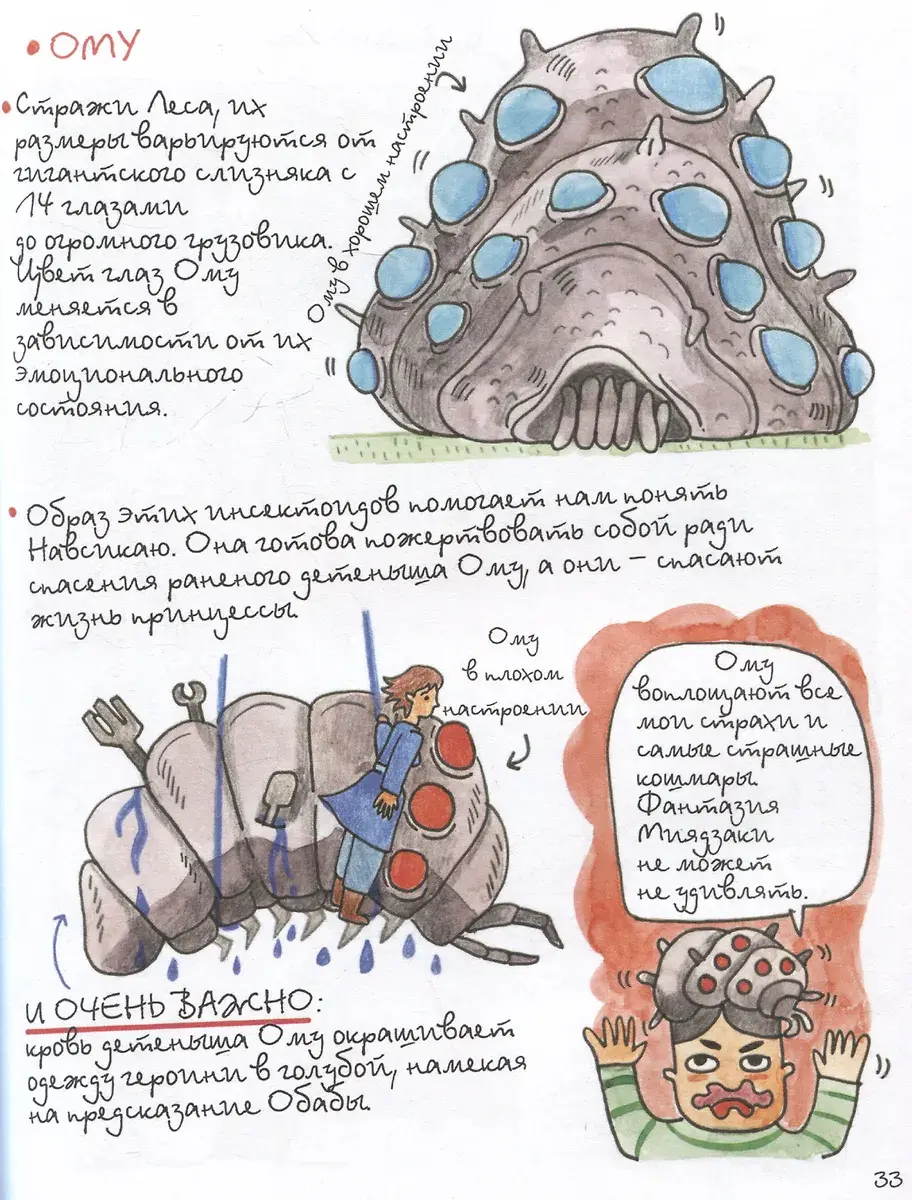 • ОМУ
• Стражи Леса, их
размеры варьируются от
гигантского слизняка с
14 глазами
до огромного грузовика.
Цвет глаз Ому
меняется в
зависимости от их
эмоционального
состояния.
Ому в хорошем настроении
• Образ этих инсектоидов помогает нам понять
Навсикаю. Она готова пожертвовать собой ради
спасения раненого детеныша Ому, а они – спасают
жизнь принцессы.
Ому
в плохом
настроении
Ому
воплощают все
мои страхи и
самые страшные
кошмары.
Фантазия
Миядзаки
не может
не удивлять.
И ОЧЕНЬ ВАЖНО:
кровь детеныша Ому окрашивает
одежду героини в голубой, намекая
на предсказание Обабы.
33